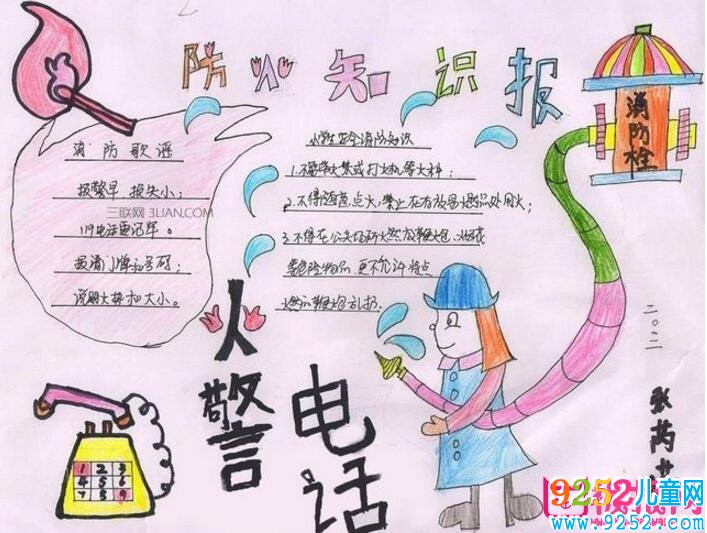 防火知识报
消防歌谣
报警早 损失小；
三联网 3LIAN.COM
119电话要记牢。
报清门牌和号码；
说明火势和大小。
小学生安全消防知识
1.不带火柴或打火机等火种；
2.不得随意点火，禁止在存放易燃品处用火；
3.不得在公共场所燃放鞭炮、
等危险物品 更不允许将点
燃的鞭炮乱扔.
消防栓
火警电话
1 2 3
4 5 6
7 8 9
二〇一二
张芮
9252儿童网
www.9252.com